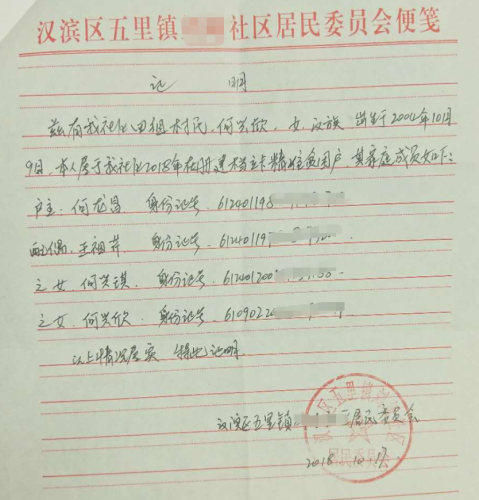 汉滨区五里镇 社区居民委员会便笺
证 明
兹有我社区 田组村民,何兴欣,女,汉族 出生于2002年10月
9日,本人属于我社区2018年在册建档立卡精准贫困户,其家庭成员如下:
户主:何龙昌 身份证号,612401198
配偶,王祖芹 身份证号,61240119
之女,何兴琪,身份证号,612401200
之女,何兴欣,身份证号,6109022
以上情况属实 特此证明.
汉滨区五里镇 居民委员会
2018.10.17
居民委员会